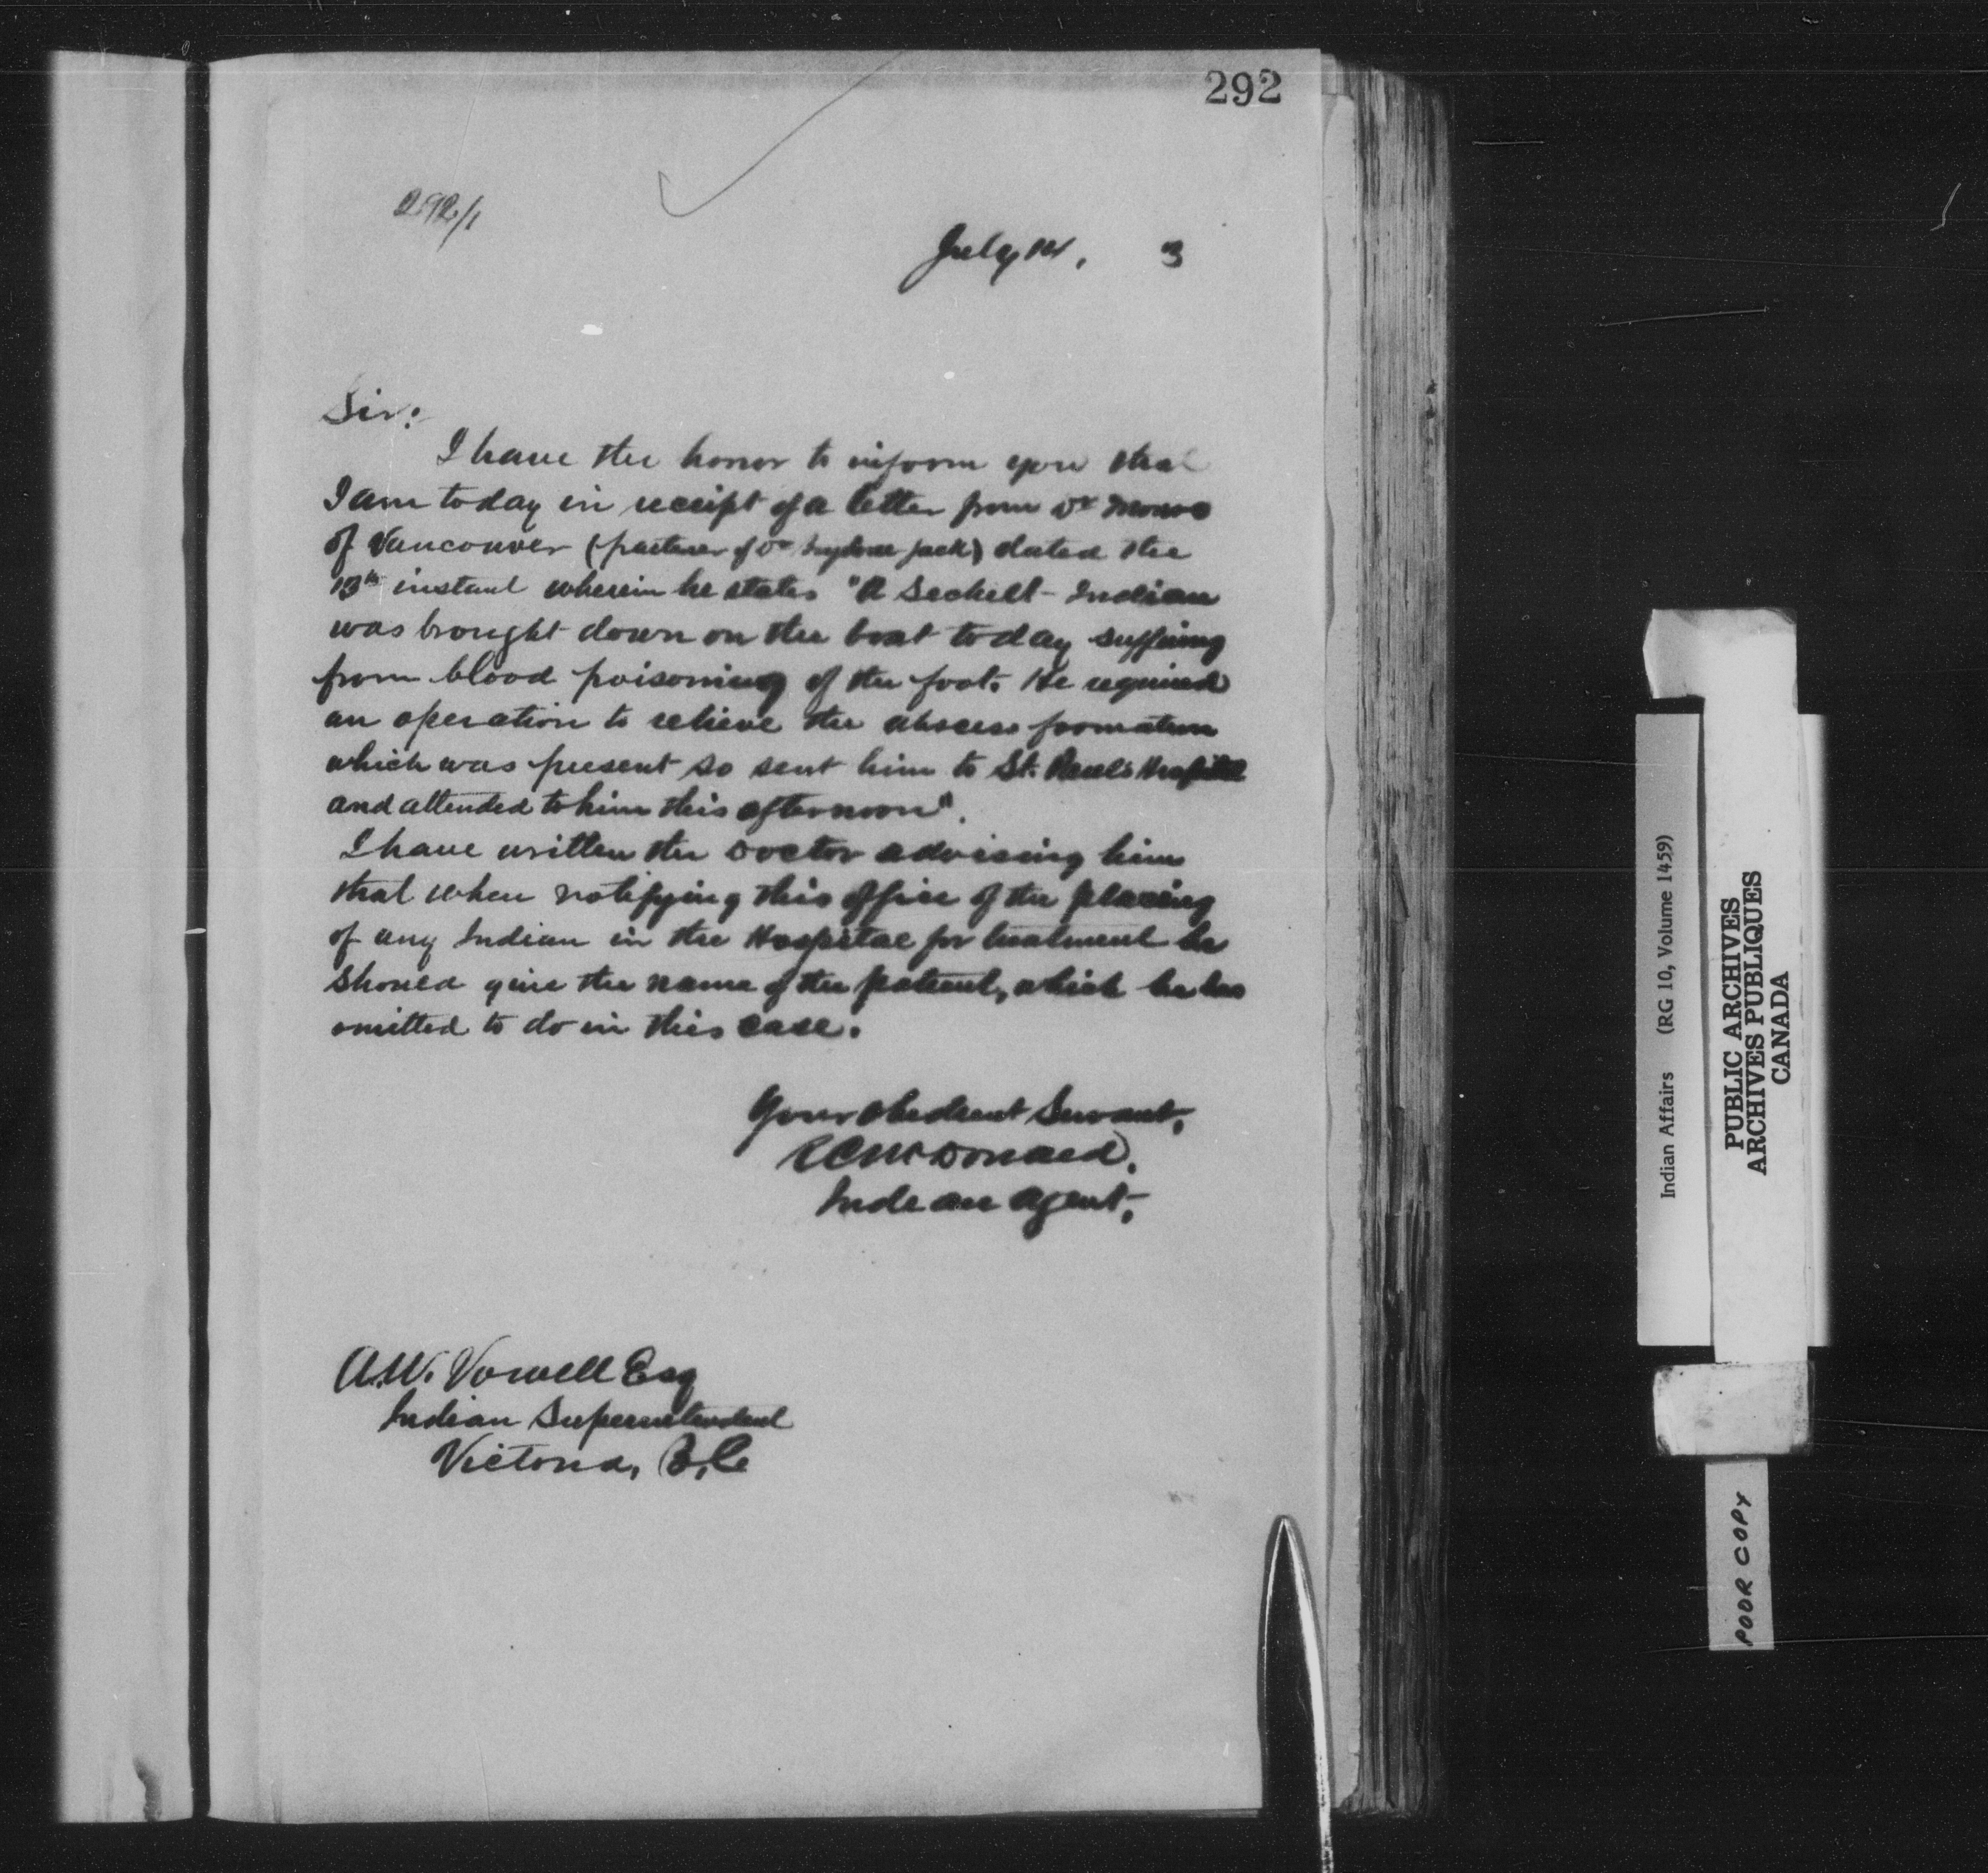 292
292/1
July 14, 3
Sir:
I have the honor to inform you that
I am today in receipt of a letter from Dr
of Vancouver (partner of Dr Jack) dated the
13th instant wherein he states "A Sechelt Indian
was brought down on the boat today suffering
from blood poisoning of the foot. He required
an operation to relieve the abscess formation
which was present so sent him to St. Paul's Hospital
and attended to him this afternoon".
I have written the Doctor advising him
that when notifying this office of the placing
of any Indian in the Hospital for treatment he
should give the name of the patient, which he has
omitted to do in this case.
Your obedient Servant,
R C McDonald.
Indian Agent,
A.W. Vowell Esq
Indian Superintendent
Victoria, B.C
Indian Affairs (RG 10, Volume 1459)
PUBLIC ARCHIVES
ARCHIVES PUBLIQUES
CANADA
POOR COPY